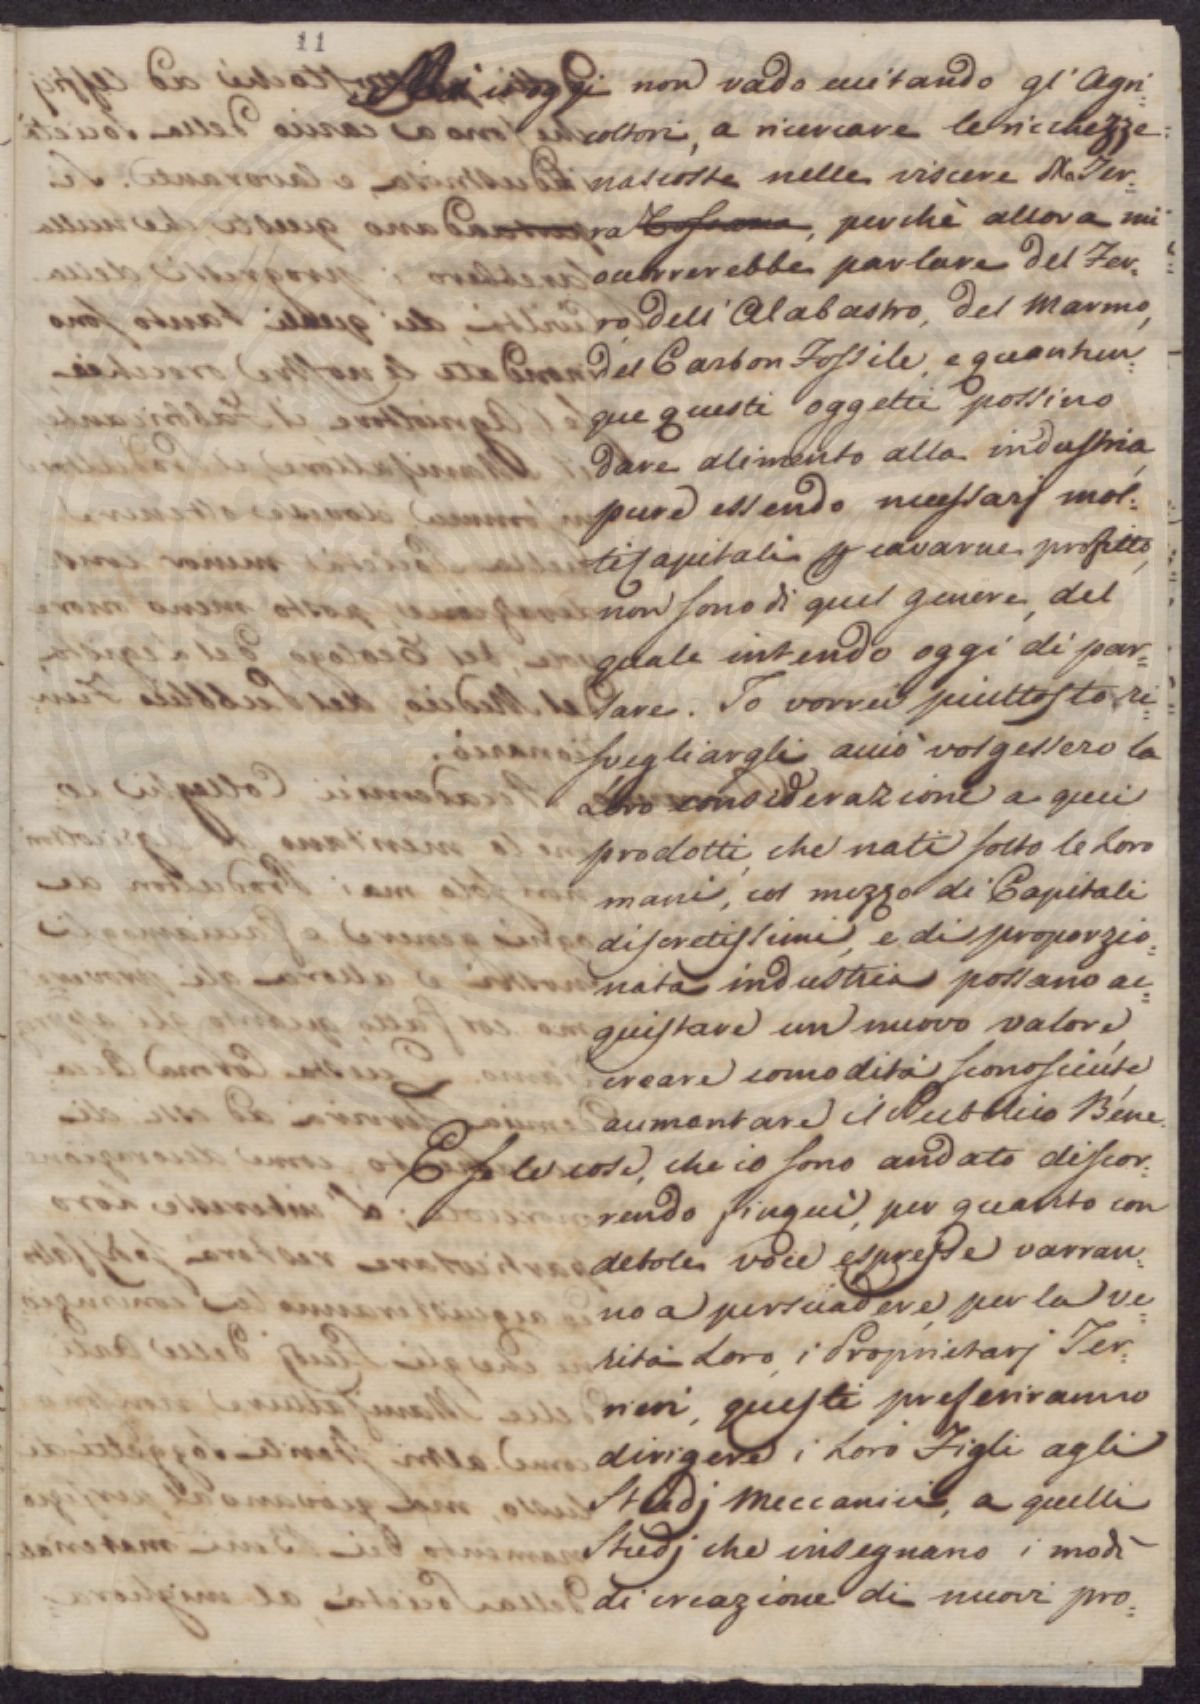 11
oggi non vado eccitando gl' Agri-
coltori, a ricercare le ricchezze
nascoste nelle viscere della Ter-
ra Toscana, perchè allora mi
occorrerebbe parlare del Fer-
ro, dell' Alabastro, del Marmo,
del Carbon Fossile, e quantun-
que questi oggetti possino
dare alimento alla industria,
pure essendo necessarj mol-
ti Capitali per cavarne profitto,
non sono di quel genere, del
quale intendo oggi di par-
lare. Io vorrei piuttosto ri-
svegliargli acciò volgessero la
Loro considerazione a quei
prodotti, che nati sotto le Loro
mani, col mezzo di Capitali
discretissimi, e di proporzio-
nata industria possano ac-
quistare un nuovo valore,
creare comodità sconosciute
aumentare il Pubblico Bene.
E se le cose, che io sono andato discor-
rendo finquì, per quanto con
debole voce espresse varran-
no a persuadere, per la ve-
rità Loro, i Proprietarj Ter-
rieri, questi preferiranno
dirigere i Loro Figli agli
Studj Meccanici, a quelli
Studj che insegnano i modi
di creazione di nuovi pro-